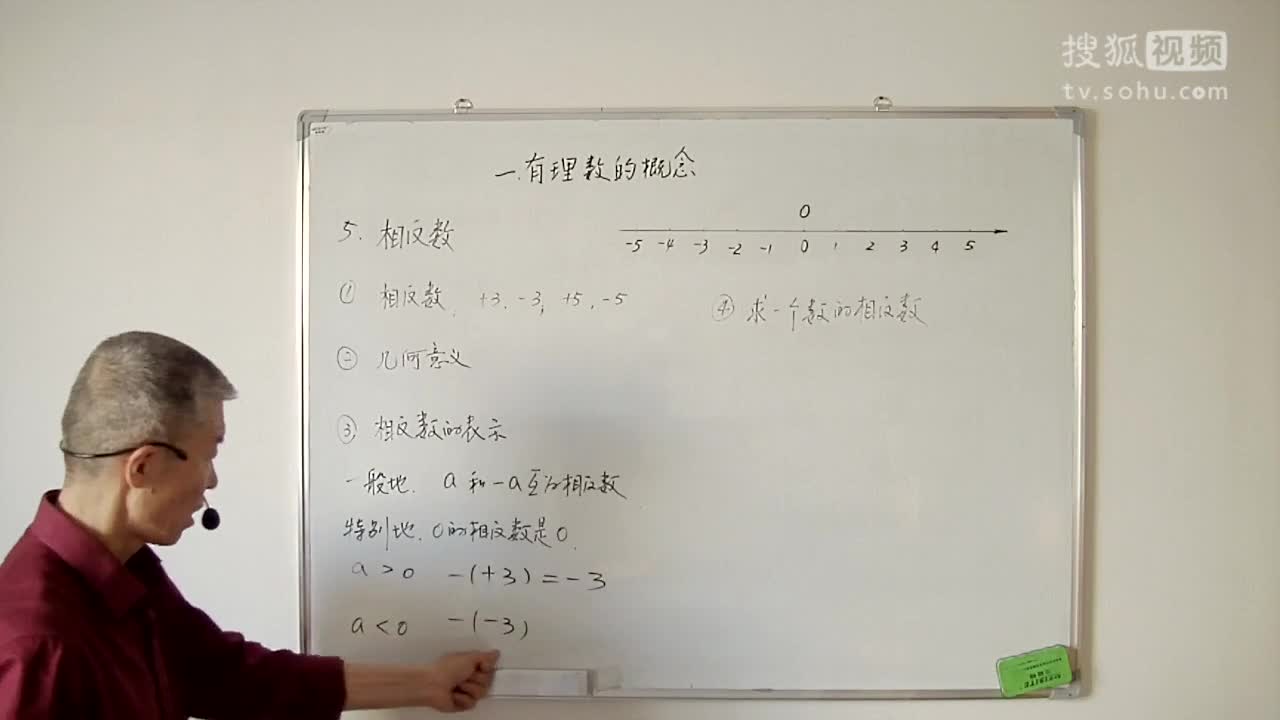 搜狐视频
tv.sohu.com
一.有理数的概念
5. 相反数
0
-5 -4 -3 -2 -1 0 1 2 3 4 5
① 相反数. +3, -3; +5, -5
④ 求一个数的相反数
② 几何意义
③ 相反数的表示
一般地. a和-a互为相反数
特别地. 0的相反数是0.
a>0 -(+3)=-3
a<0 -(-3)